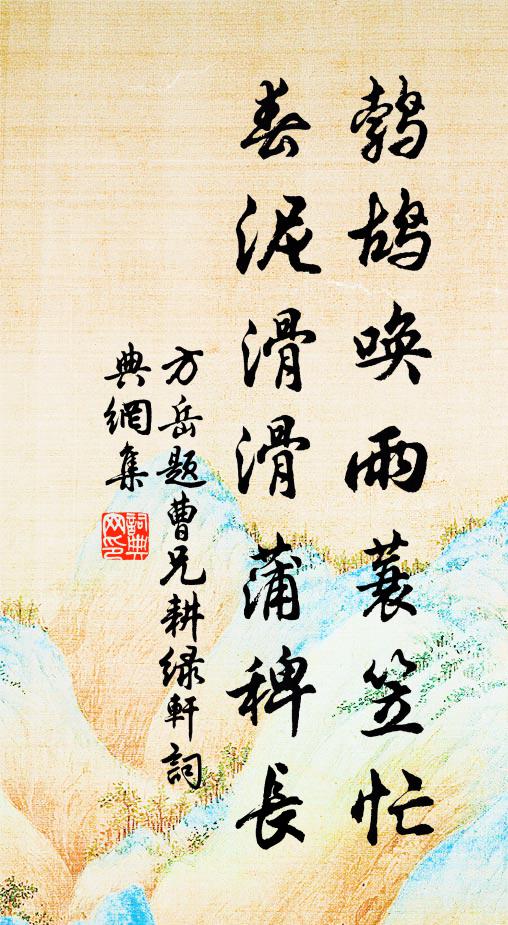 鹁鸪唤雨蓑笠忙
春泥滑滑蒲稗長
方岳題曹兄耕緑軒詞
典網集
詞典
网印